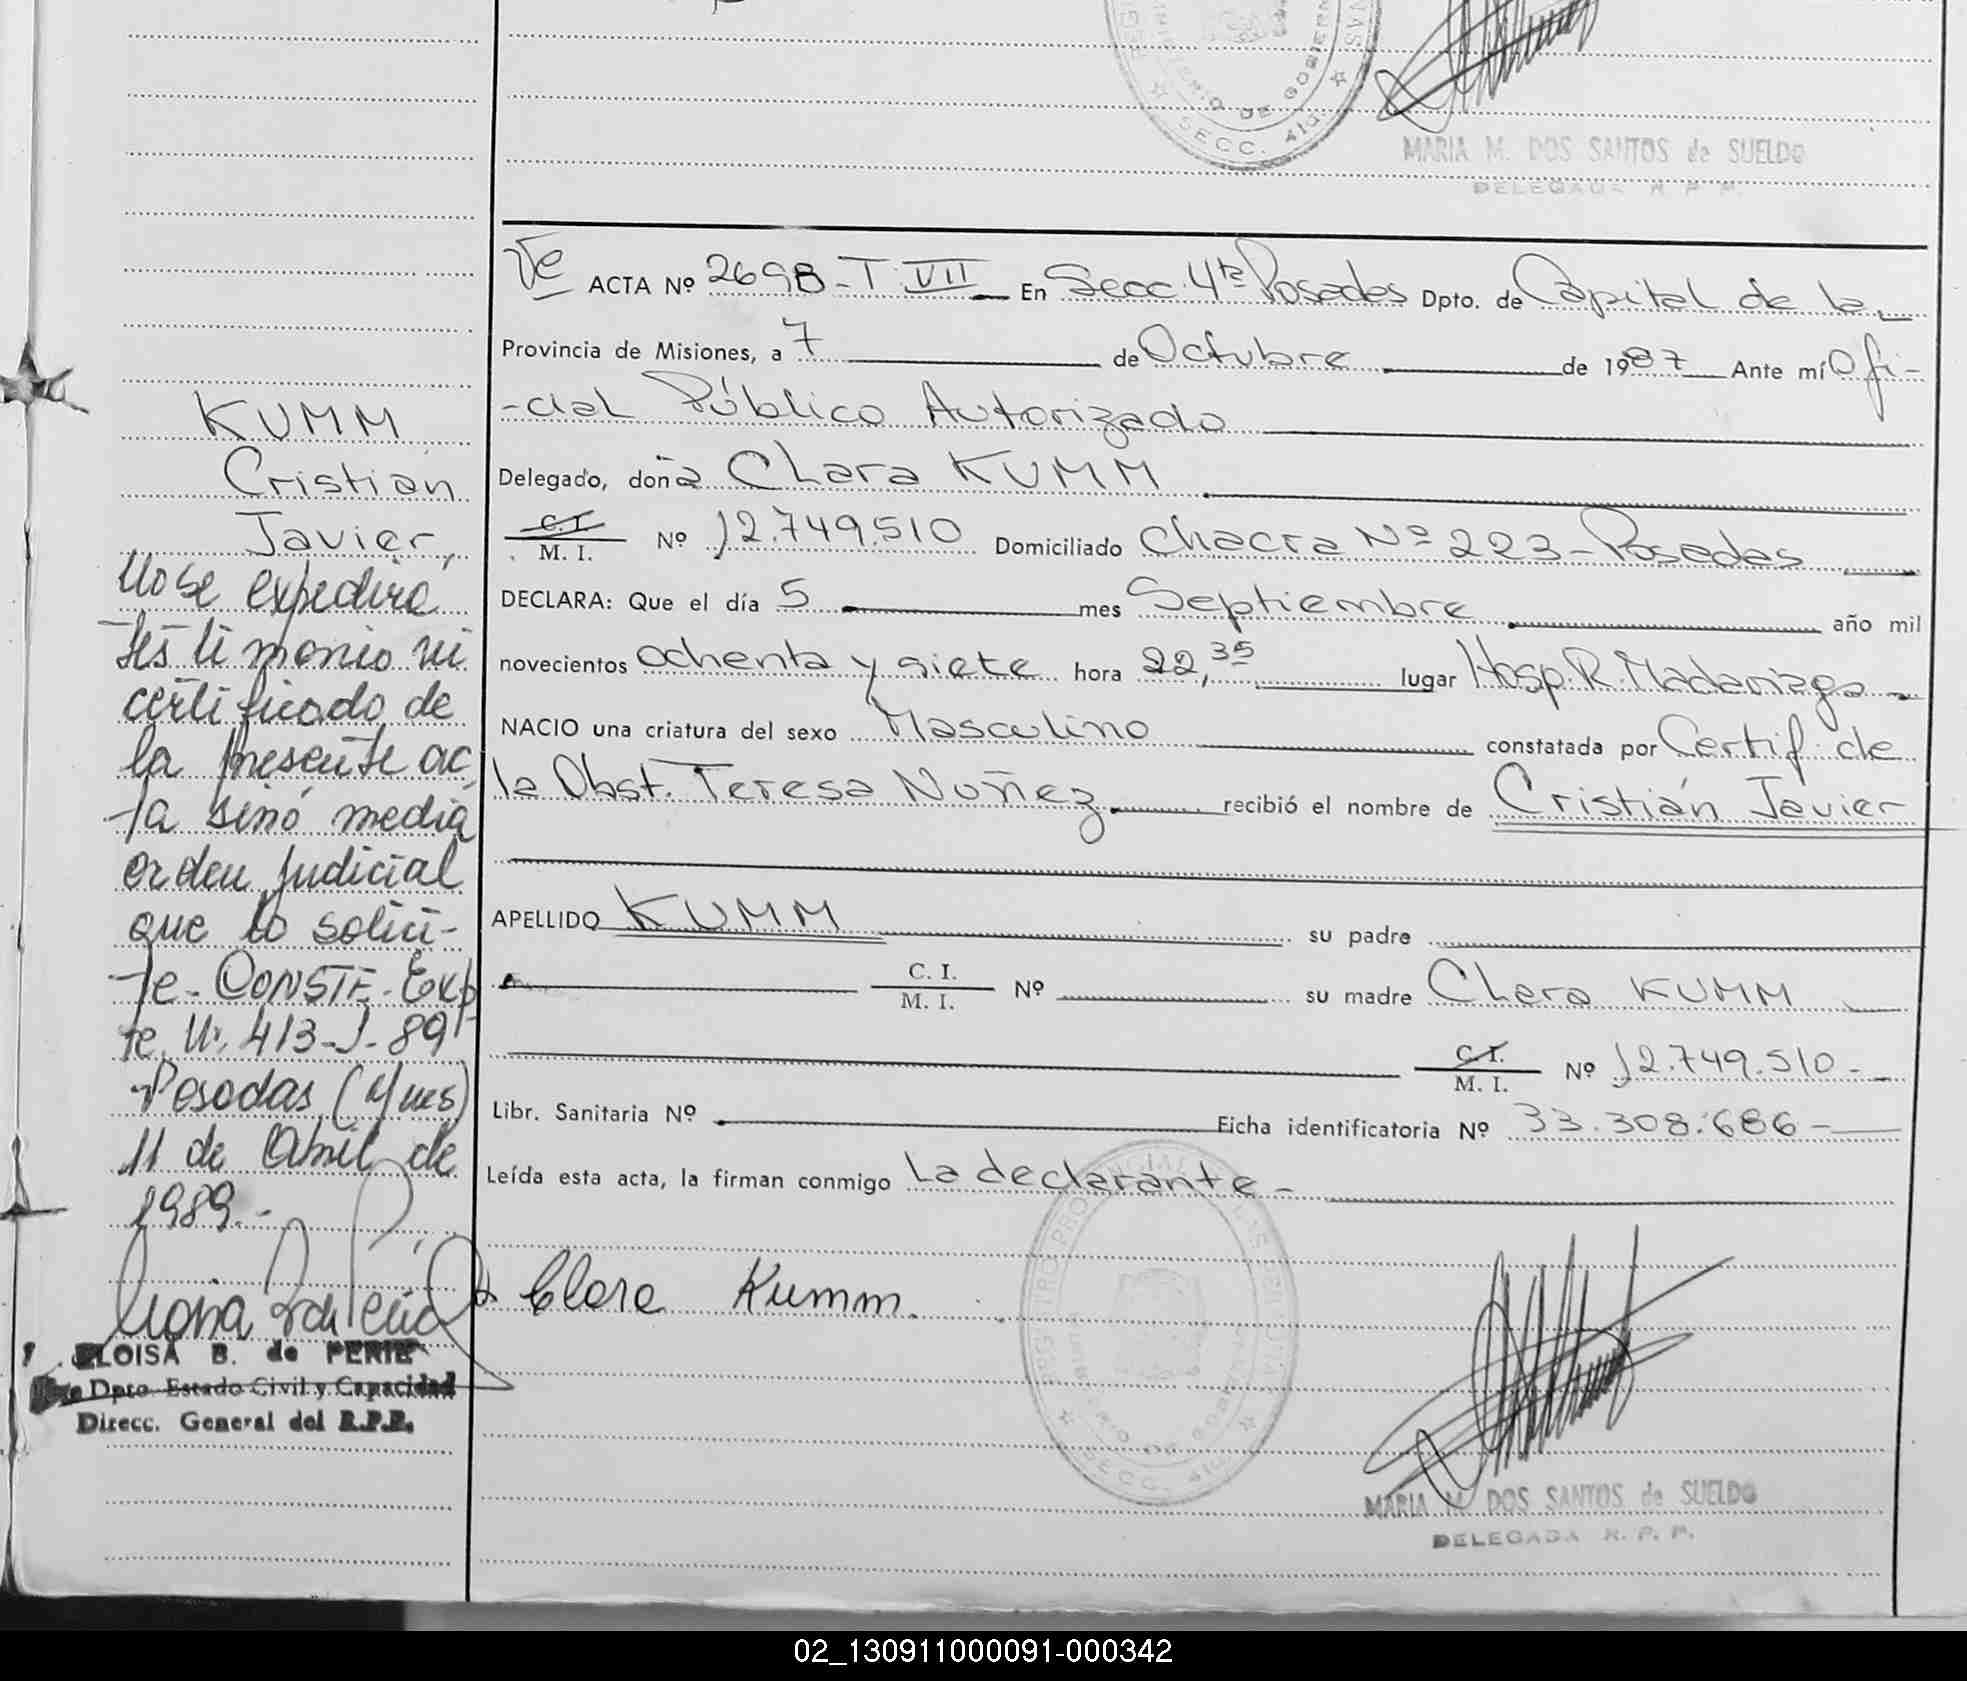 MARIA M. DOS SANTOS de SUELDO
DELEGADA R. P. P.
SECC. 4ta.
Ve ACTA Nº 2698-T VII En Secc. 4ta Posadas Dpto. de Capital de la
Provincia de Misiones, a 7 de Octubre de 1987 Ante mí Ofi-
-cial Público Autorizado
Delegado, doña Clara KUMM
C. I. / M. I. Nº 12.749.510 Domiciliado Chacra Nº 223-Posadas
DECLARA: Que el día 5 mes Septiembre año mil
novecientos ochenta y siete hora 22,35 lugar Hosp. R. Madariaga
NACIO una criatura del sexo Masculino constatada por Certif. de
la Obst. Teresa Nuñez recibió el nombre de Cristián Javier
APELLIDO KUMM su padre
C. I. / M. I. Nº su madre Clara KUMM
C. I. / M. I. Nº 12.749.510-
Libr. Sanitaria Nº Ficha identificatoria Nº 33.308.686-
Leída esta acta, la firman conmigo La declarante-
Clara Kumm.
MARIA M. DOS SANTOS de SUELDO
DELEGADA R. P. P.
SECC. 4ta.
KUMM
Cristian
Javier,
No se expedirá
tes timonio ni
certificado de
la presente ac
-ta sinó media
orden judicial
que lo solici-
-te- CONSTE- Exp
te. Nº. 413-J-89
Posadas (Mnes)
11 de Abril de
1989.-
ELOISA B. de PERIE
Dpto Estado Civil y Capacidad
Direcc. General del R.P.P.
02_130911000091-000342